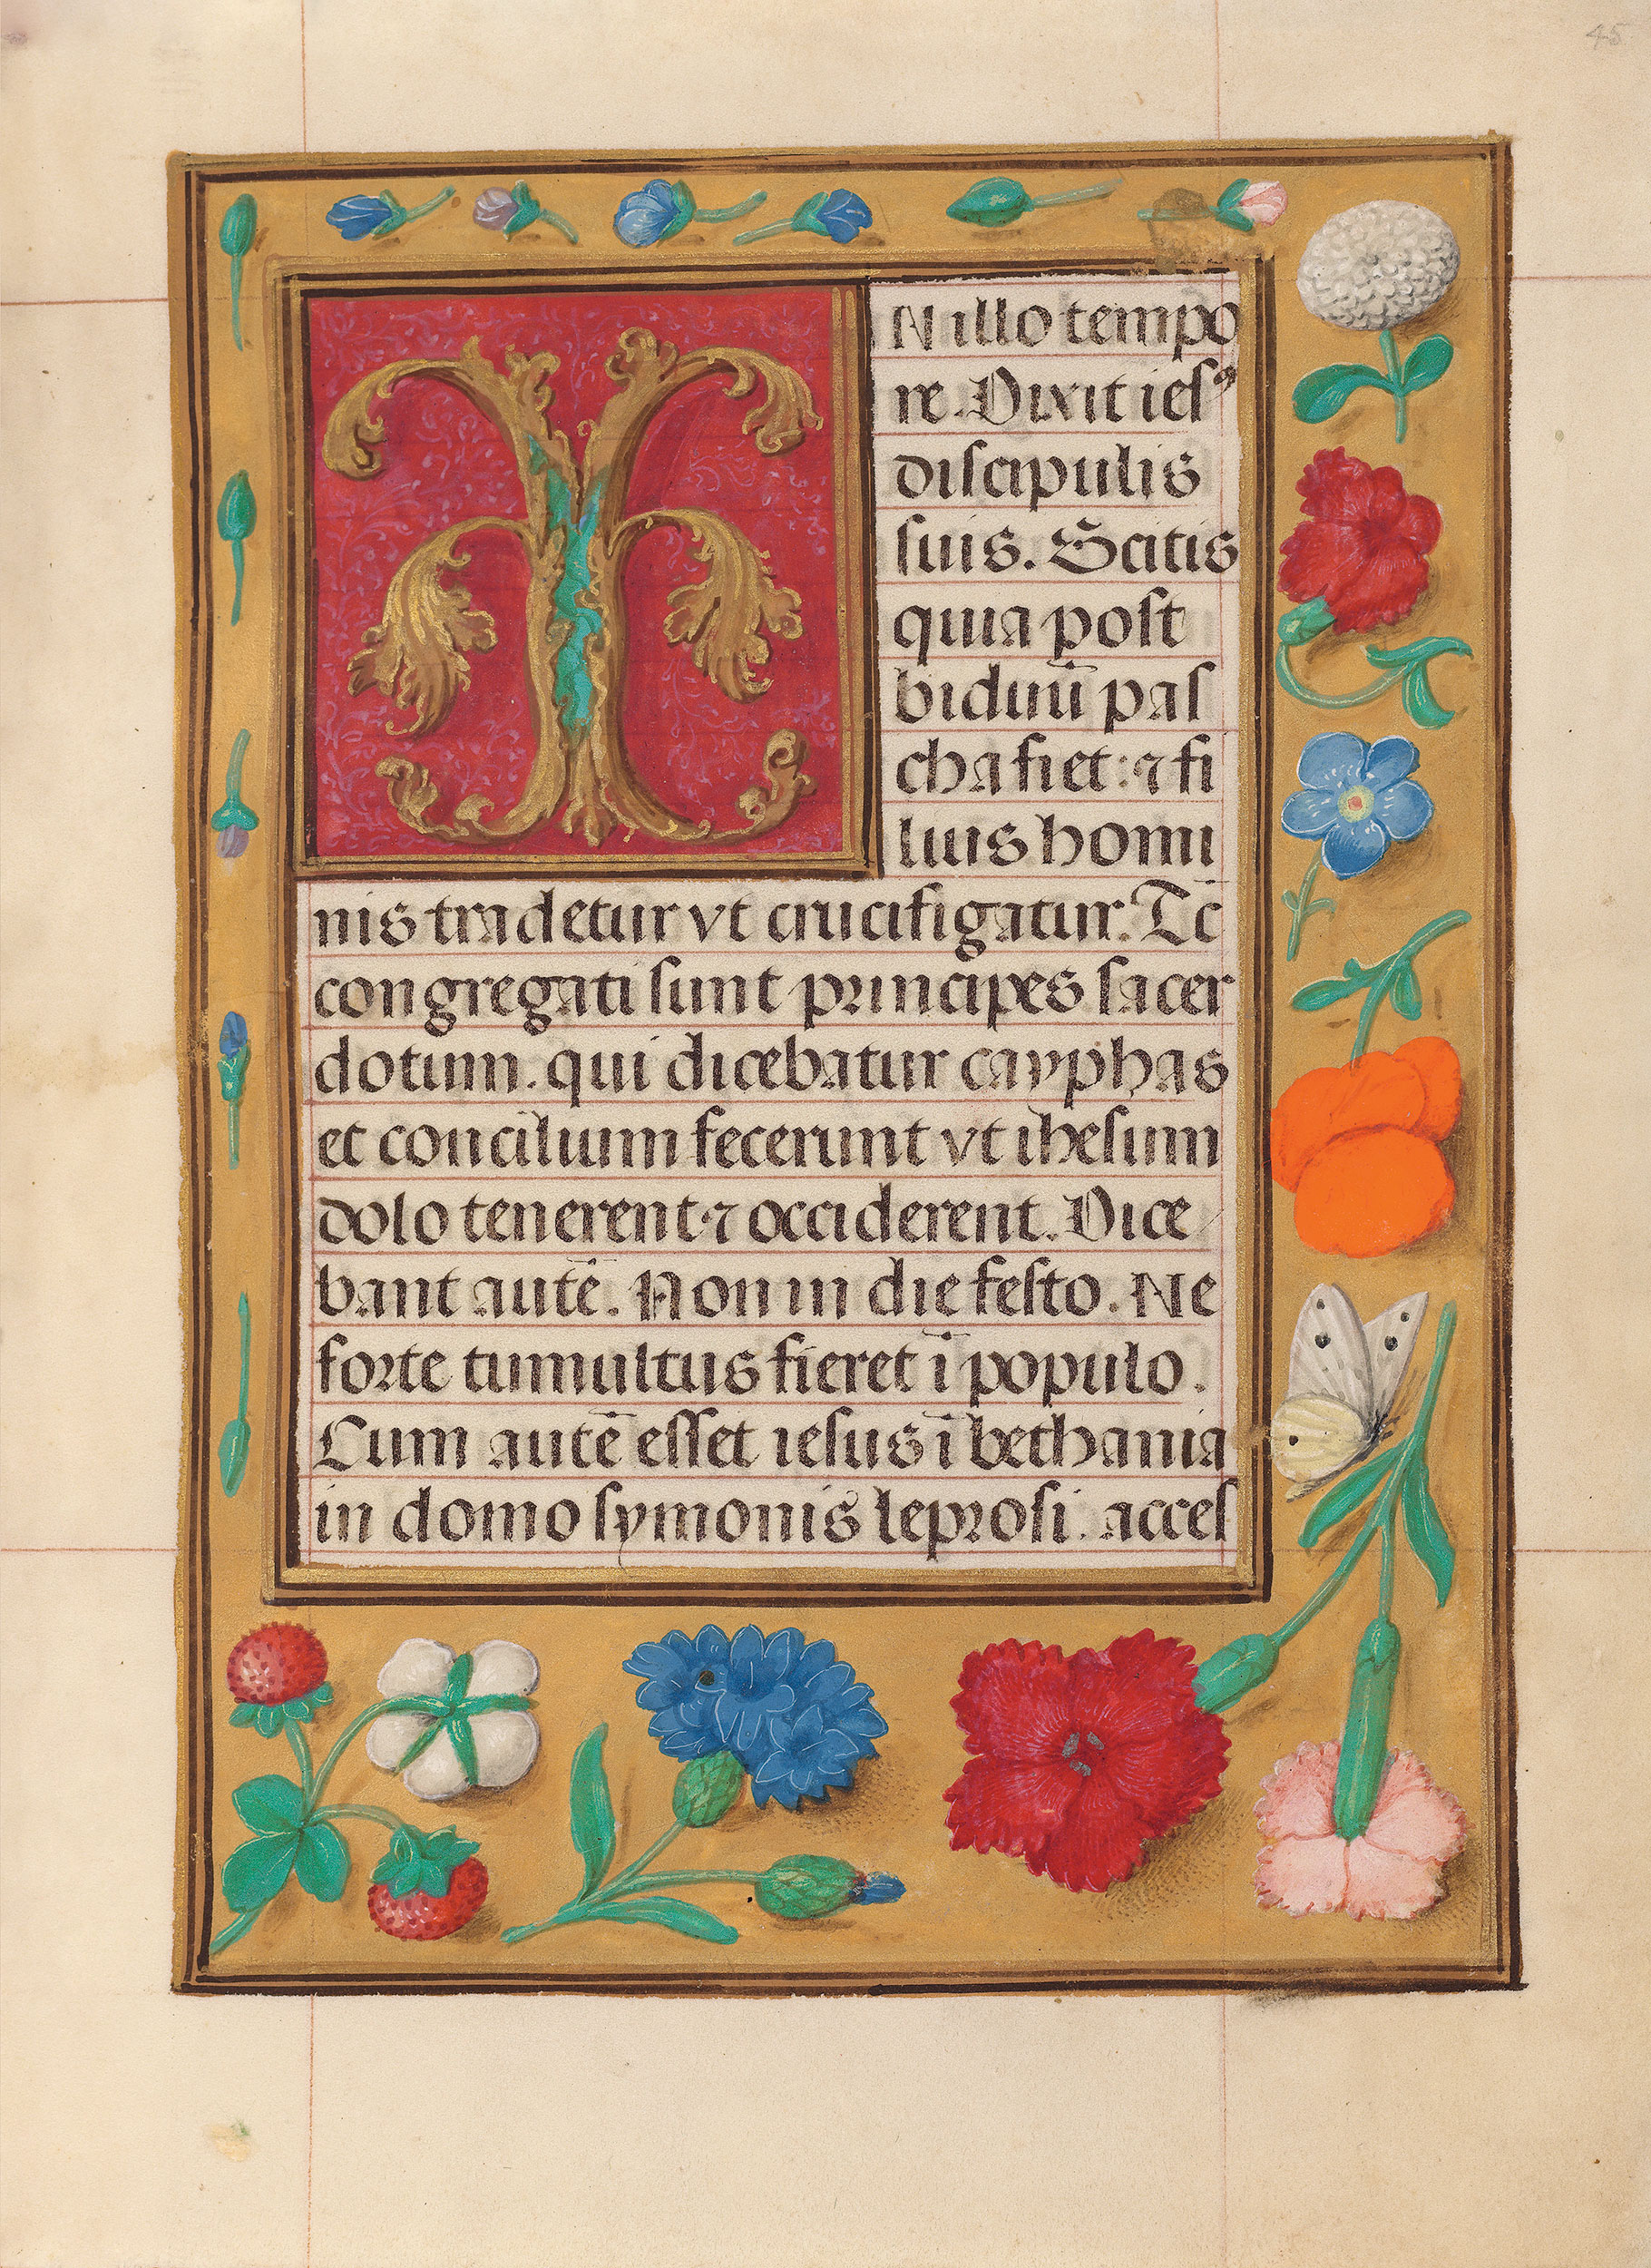 45
IN illo tempo
re. Dixit iesꝰ
discipulis
suis. Scitis
quia post
biduū pas
cha fiet: ⁊ fi
lius homi
nis tradetur vt crucifigatur. Tc̄
congregati sunt principes sacer
dotum. qui dicebatur cayphas
et concilium fecerunt vt ihesum
dolo tenerent ⁊ occiderent. Dice
bant autē. Non in die festo. Ne
forte tumultus fieret ī populo.
Cum autē esset iesus ī bethania
in domo symonis leprosi. acces